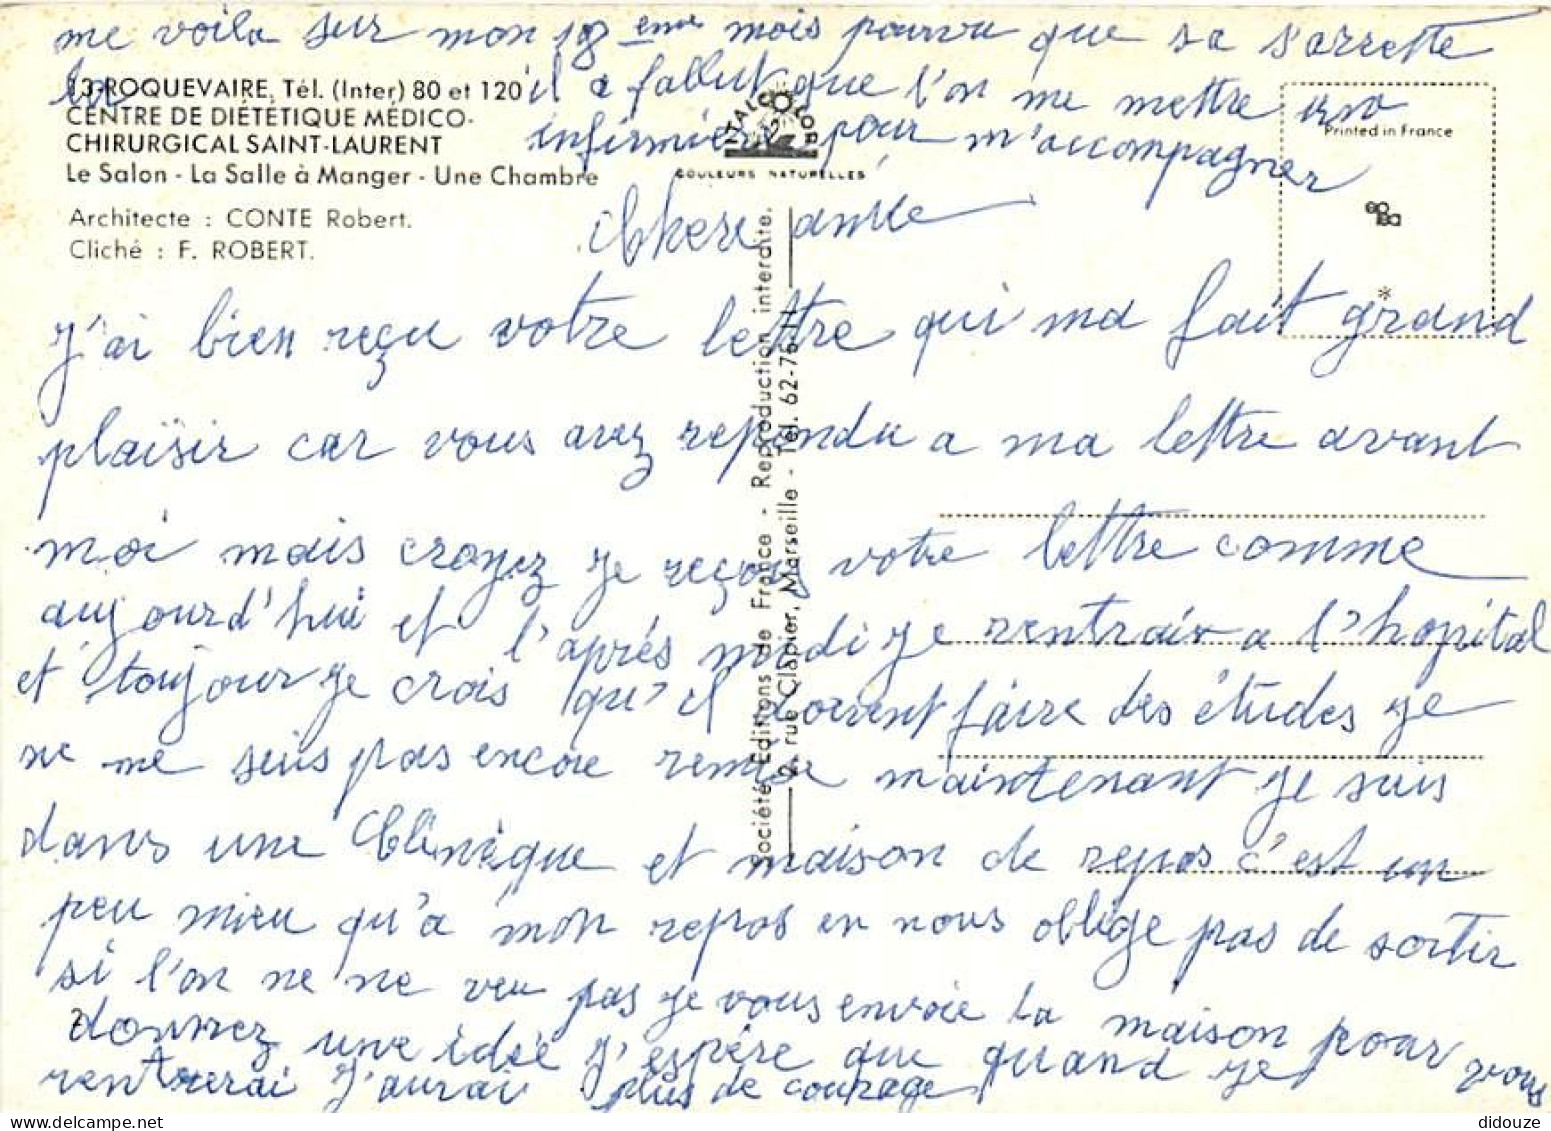 me voila sur mon 18 eme mois pourvu que sa s'arrette
la
il a fallut que l'on me mettre une
infirmière pour m'accompagner
13-ROQUEVAIRE. Tél. (Inter) 80 et 120
CENTRE DE DIÉTÉTIQUE MÉDICO-
CHIRURGICAL SAINT-LAURENT
Le Salon - La Salle à Manger - Une Chambre
Architecte : CONTE Robert.
Cliché : F. ROBERT.
ITALCOLOR
COULEURS NATURELLES
Printed in France
Société Editions de France - Reproduction interdite.
2, rue Clapier, Marseille - Tél. 62-76-11
Chere amie
J'ai bien reçu votre lettre qui ma fait grand
plaisir car vous avez repondu a ma lettre avant
moi mais croyez je reçois votre lettre comme
aujourd'hui et l'après midi je rentrais a l'hopital
et toujour je crois qu'il doivent faire des études je
ne me suis pas encore remise maintenant je suis
dans une Clinique et maison de repos c'est un
peu mieu qu'a mon repos en nous oblige pas de sortir
si l'on ne ne veu pas je vous envoie la maison pour vous
donnez une idée j'espére que quand je
rentrerai j'aurai plus de courage
didouze